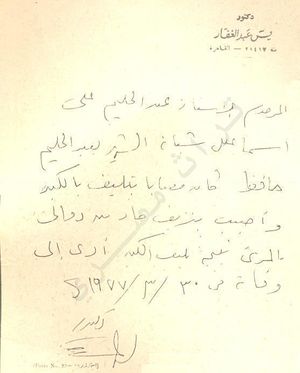 دكتور
يس عبد الغفار
ت ٢٠٤١٣ – القاهرة
المرحوم الاستاذ عبد الحليم على
اسماعيل شبانة الشهير بعبد الحليم
حافظ كان مصابا بتليف بالكبد
وأصيب بنزيف حاد من دوالى
بالمرئ نتيجة تليف الكبد أدى إلى
وفاته فى ٣٠ / ٣ / ١٩٧٧
دكتور